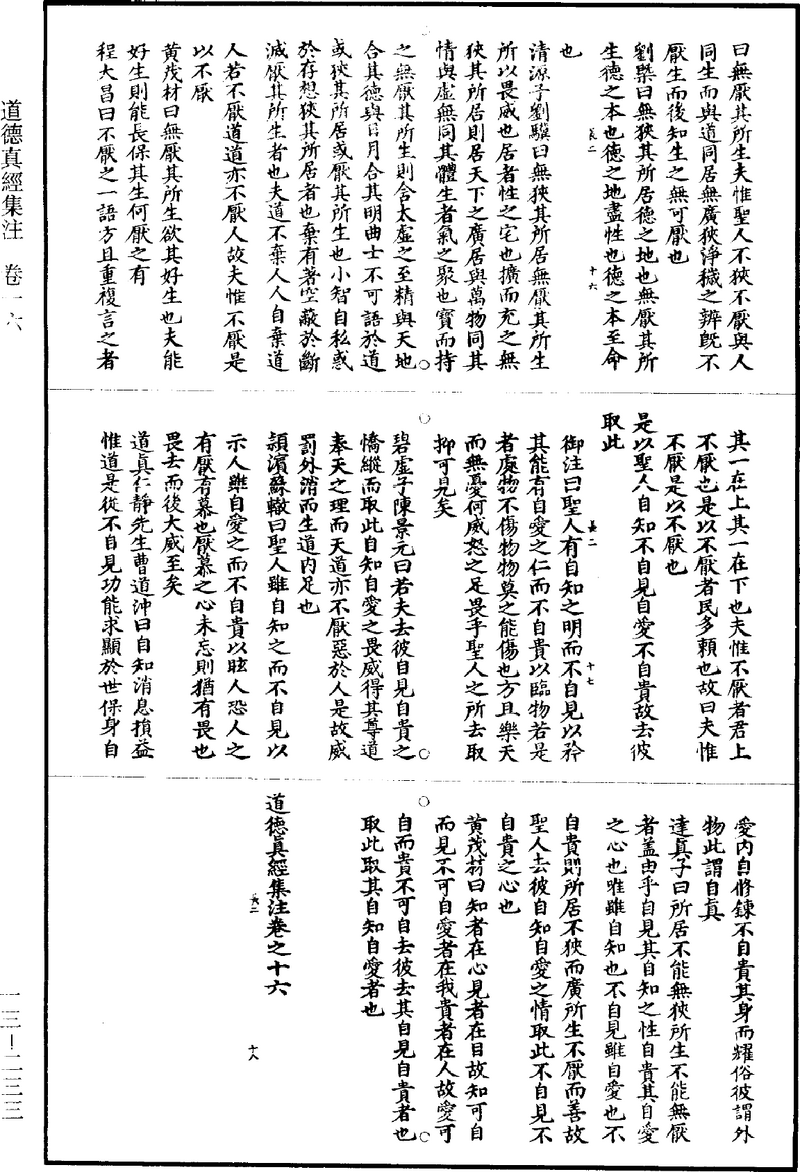 道德真經集注　卷一六
曰無厭其所生夫惟聖人不狹不厭與人
同生而與道同居無廣狹淨穢之辨旣不
厭生而後知生之無可厭也
劉槩曰無狹其所居德之地也無厭其所
生德之本也德之地盡性也德之本至命
也
長二　十六
清源子劉驥曰無狹其所居無厭其所生
所以畏威也居者性之宅也擴而充之無
狹其所居則居天下之廣居與萬物同其
情與虛無同其體生者氣之聚也寶而持
之無厭其所生則含太虛之至精與天地
合其德與日月合其明曲士不可語於道
或狹其所居或厭其所生也小智自私惑
於存想狹其所居者也棄有著空蔽於斷
滅厭其所生者也夫道不棄人人自棄道
人若不厭道道亦不厭人故夫惟不厭是
以不厭
黃茂材曰無厭其所生欲其好生也夫能
好生則能長保其生何厭之有
程大昌曰不厭之一語方且重複言之者
其一在上其一在下也夫惟不厭者君上
不厭也是以不厭者民多賴也故曰夫惟
不厭是以不厭也
是以聖人自知不自見自愛不自貴故去彼
取此
御注曰聖人有自知之明而不自見以矜
其能有自愛之仁而不自貴以臨物若是
者處物不傷物物莫之能傷也方且樂天
而無憂何威怒之足畏乎聖人之所去取
抑可見矣
長二　十七
碧虛子陳景元曰若夫去彼自見自貴之
憍縱而取此自知自愛之畏威得其尊道
奉天之理而天道亦不厭惡於人是故威
罰外消而生道内足也
潁濱蘇轍曰聖人雖自知之而不自見以
示人雖自愛之而不自貴以眩人恐人之
有厭有慕也厭慕之心未忘則猶有畏也
畏去而後大威至矣
道真仁靜先生曹道沖曰自知消息損益
惟道是從不自見功能求顯於世保身自
愛内自修鍊不自貴其身而耀俗彼謂外
物此謂自真
達真子曰所居不能無狹所生不能無厭
者盖由乎自見其自知之性自貴其自愛
之心也唯雖自知也不自見雖自愛也不
自貴則所居不狹而廣所生不厭而善故
聖人去彼自知自愛之情取此不自見不
自貴之心也
黃茂材曰知者在心見者在目故知可自
而見不可自愛者在我貴者在人故愛可
自而貴不可自去彼去其自見自貴者也
取此取其自知自愛者也
道德真經集注卷之十六
長二　十八
一三—二三三